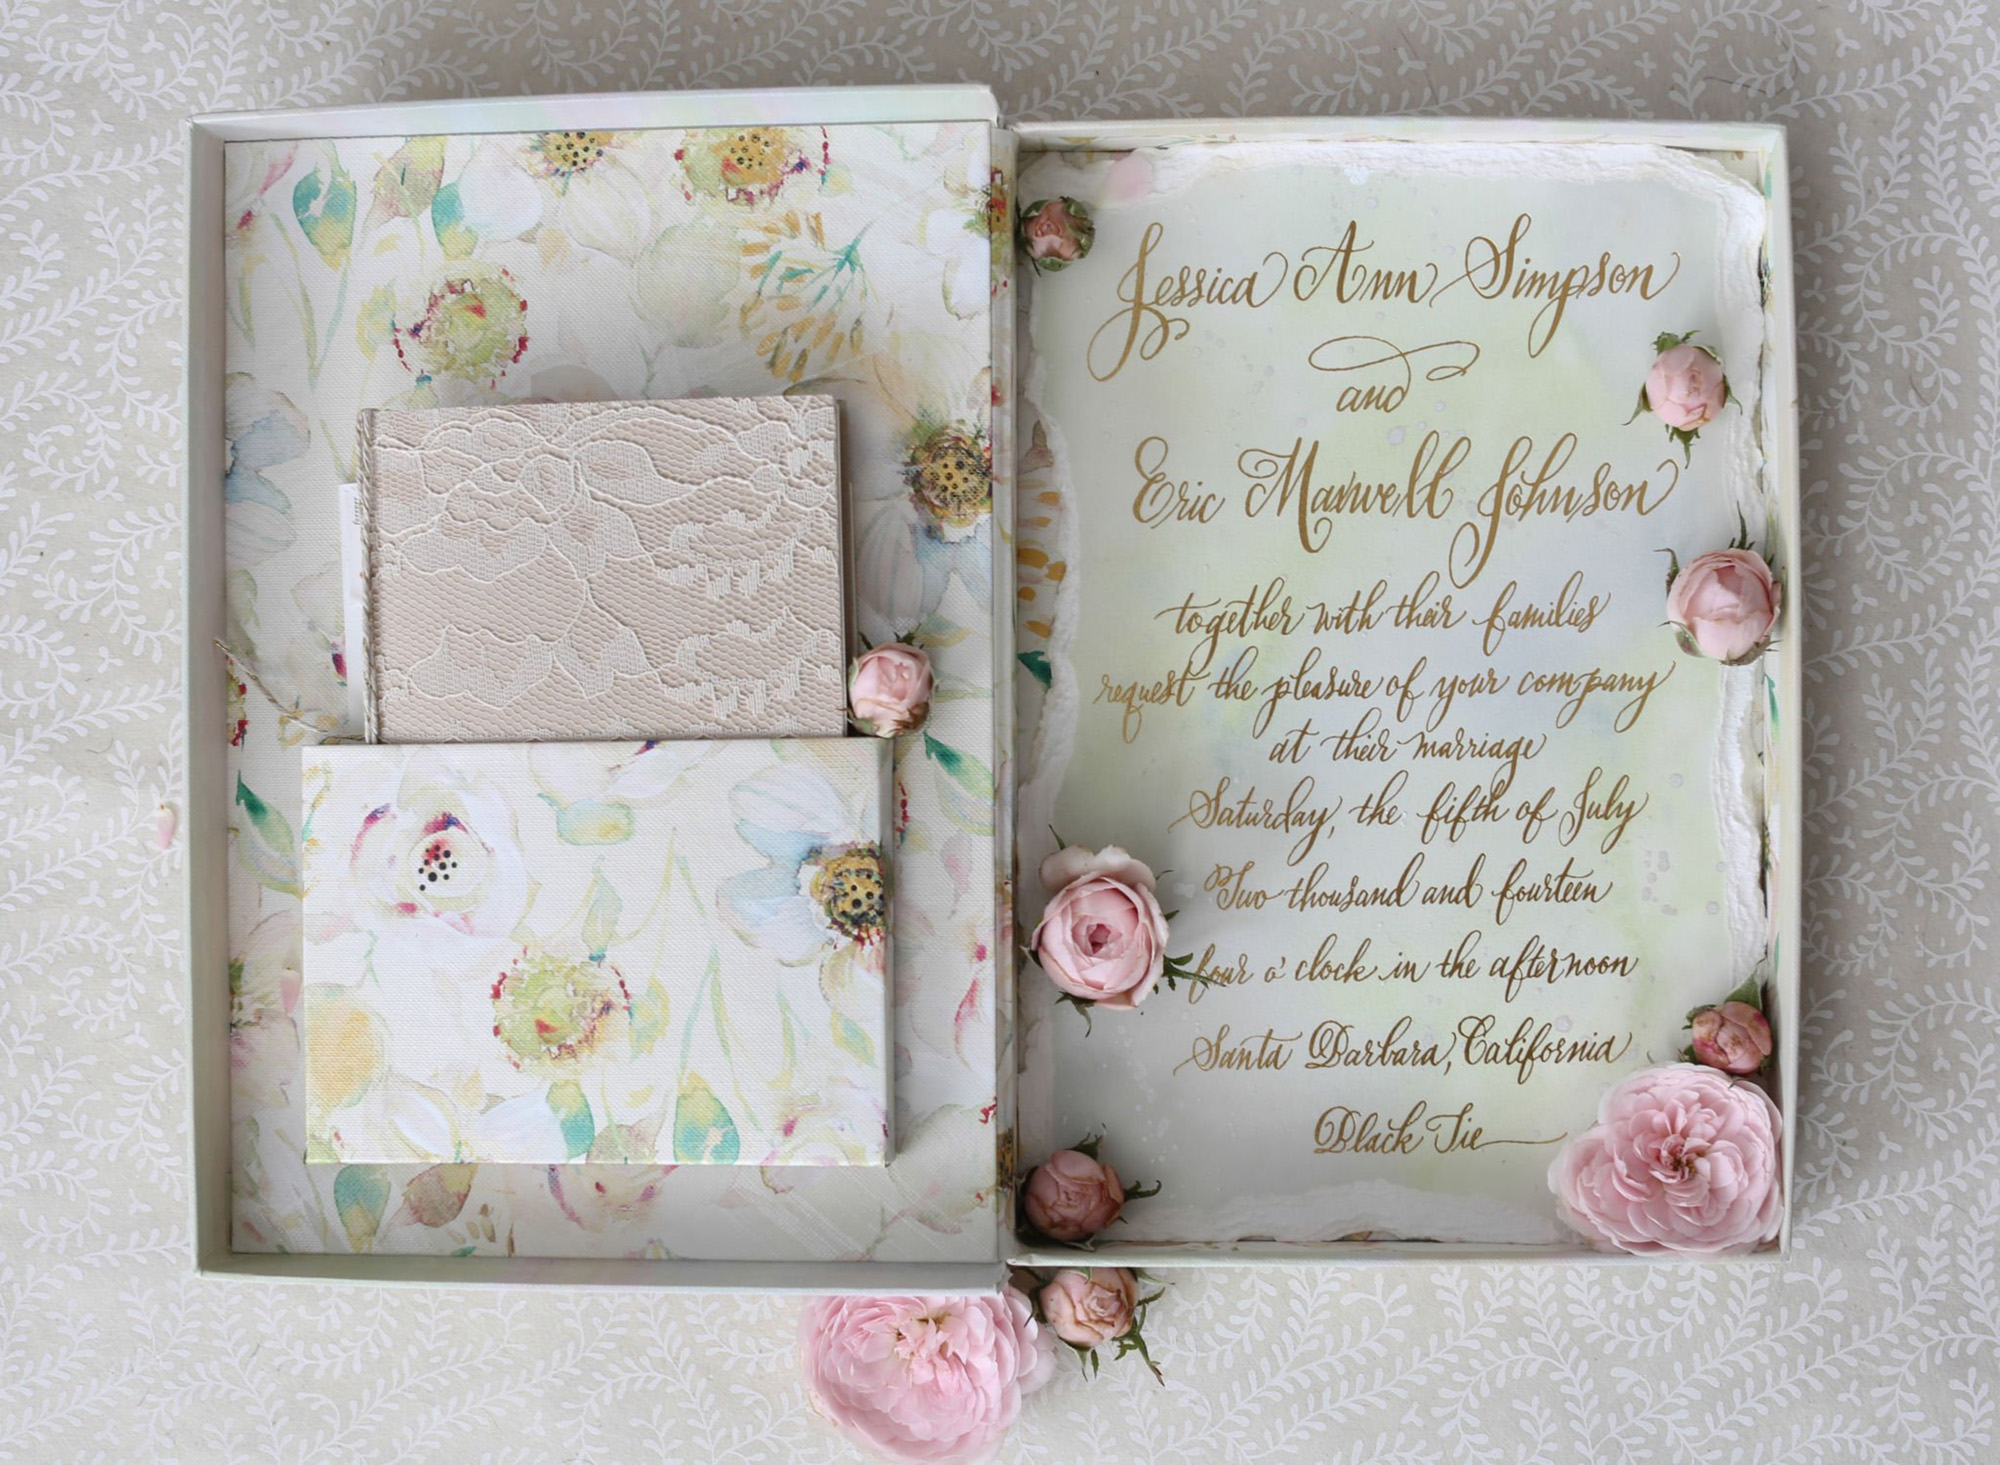 Jessica Ann Simpson
and
Eric Maxwell Johnson
together with their families
request the pleasure of your company
at their marriage
Saturday, the fifth of July
Two thousand and fourteen
four o' clock in the afternoon
Santa Barbara, California
Black Tie